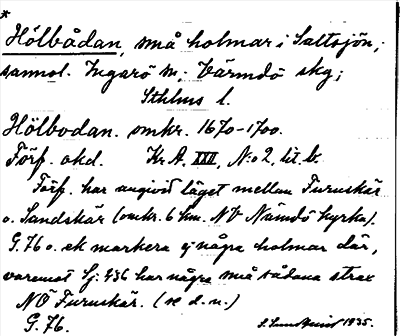 *
Hölbådan, små holmar i Saltsjön,
sannol. Ingarö sn, Värmdö skg;
Sthlms l.
Hölbodan. omkr. 1670-1700.
Förf. okd. Kr. A. XXII, N:o 2, lit. b.
Förf. har angivit läget mellan Furuskär
o. Sandskär (omkr. 6 km. NV Nämdö kyrka).
G. 76 o. ek markera ej några holmar där,
varemot Sj. 436 har några små sådana strax
NO Furuskär. (se d. u.)
G. 76.
1935.